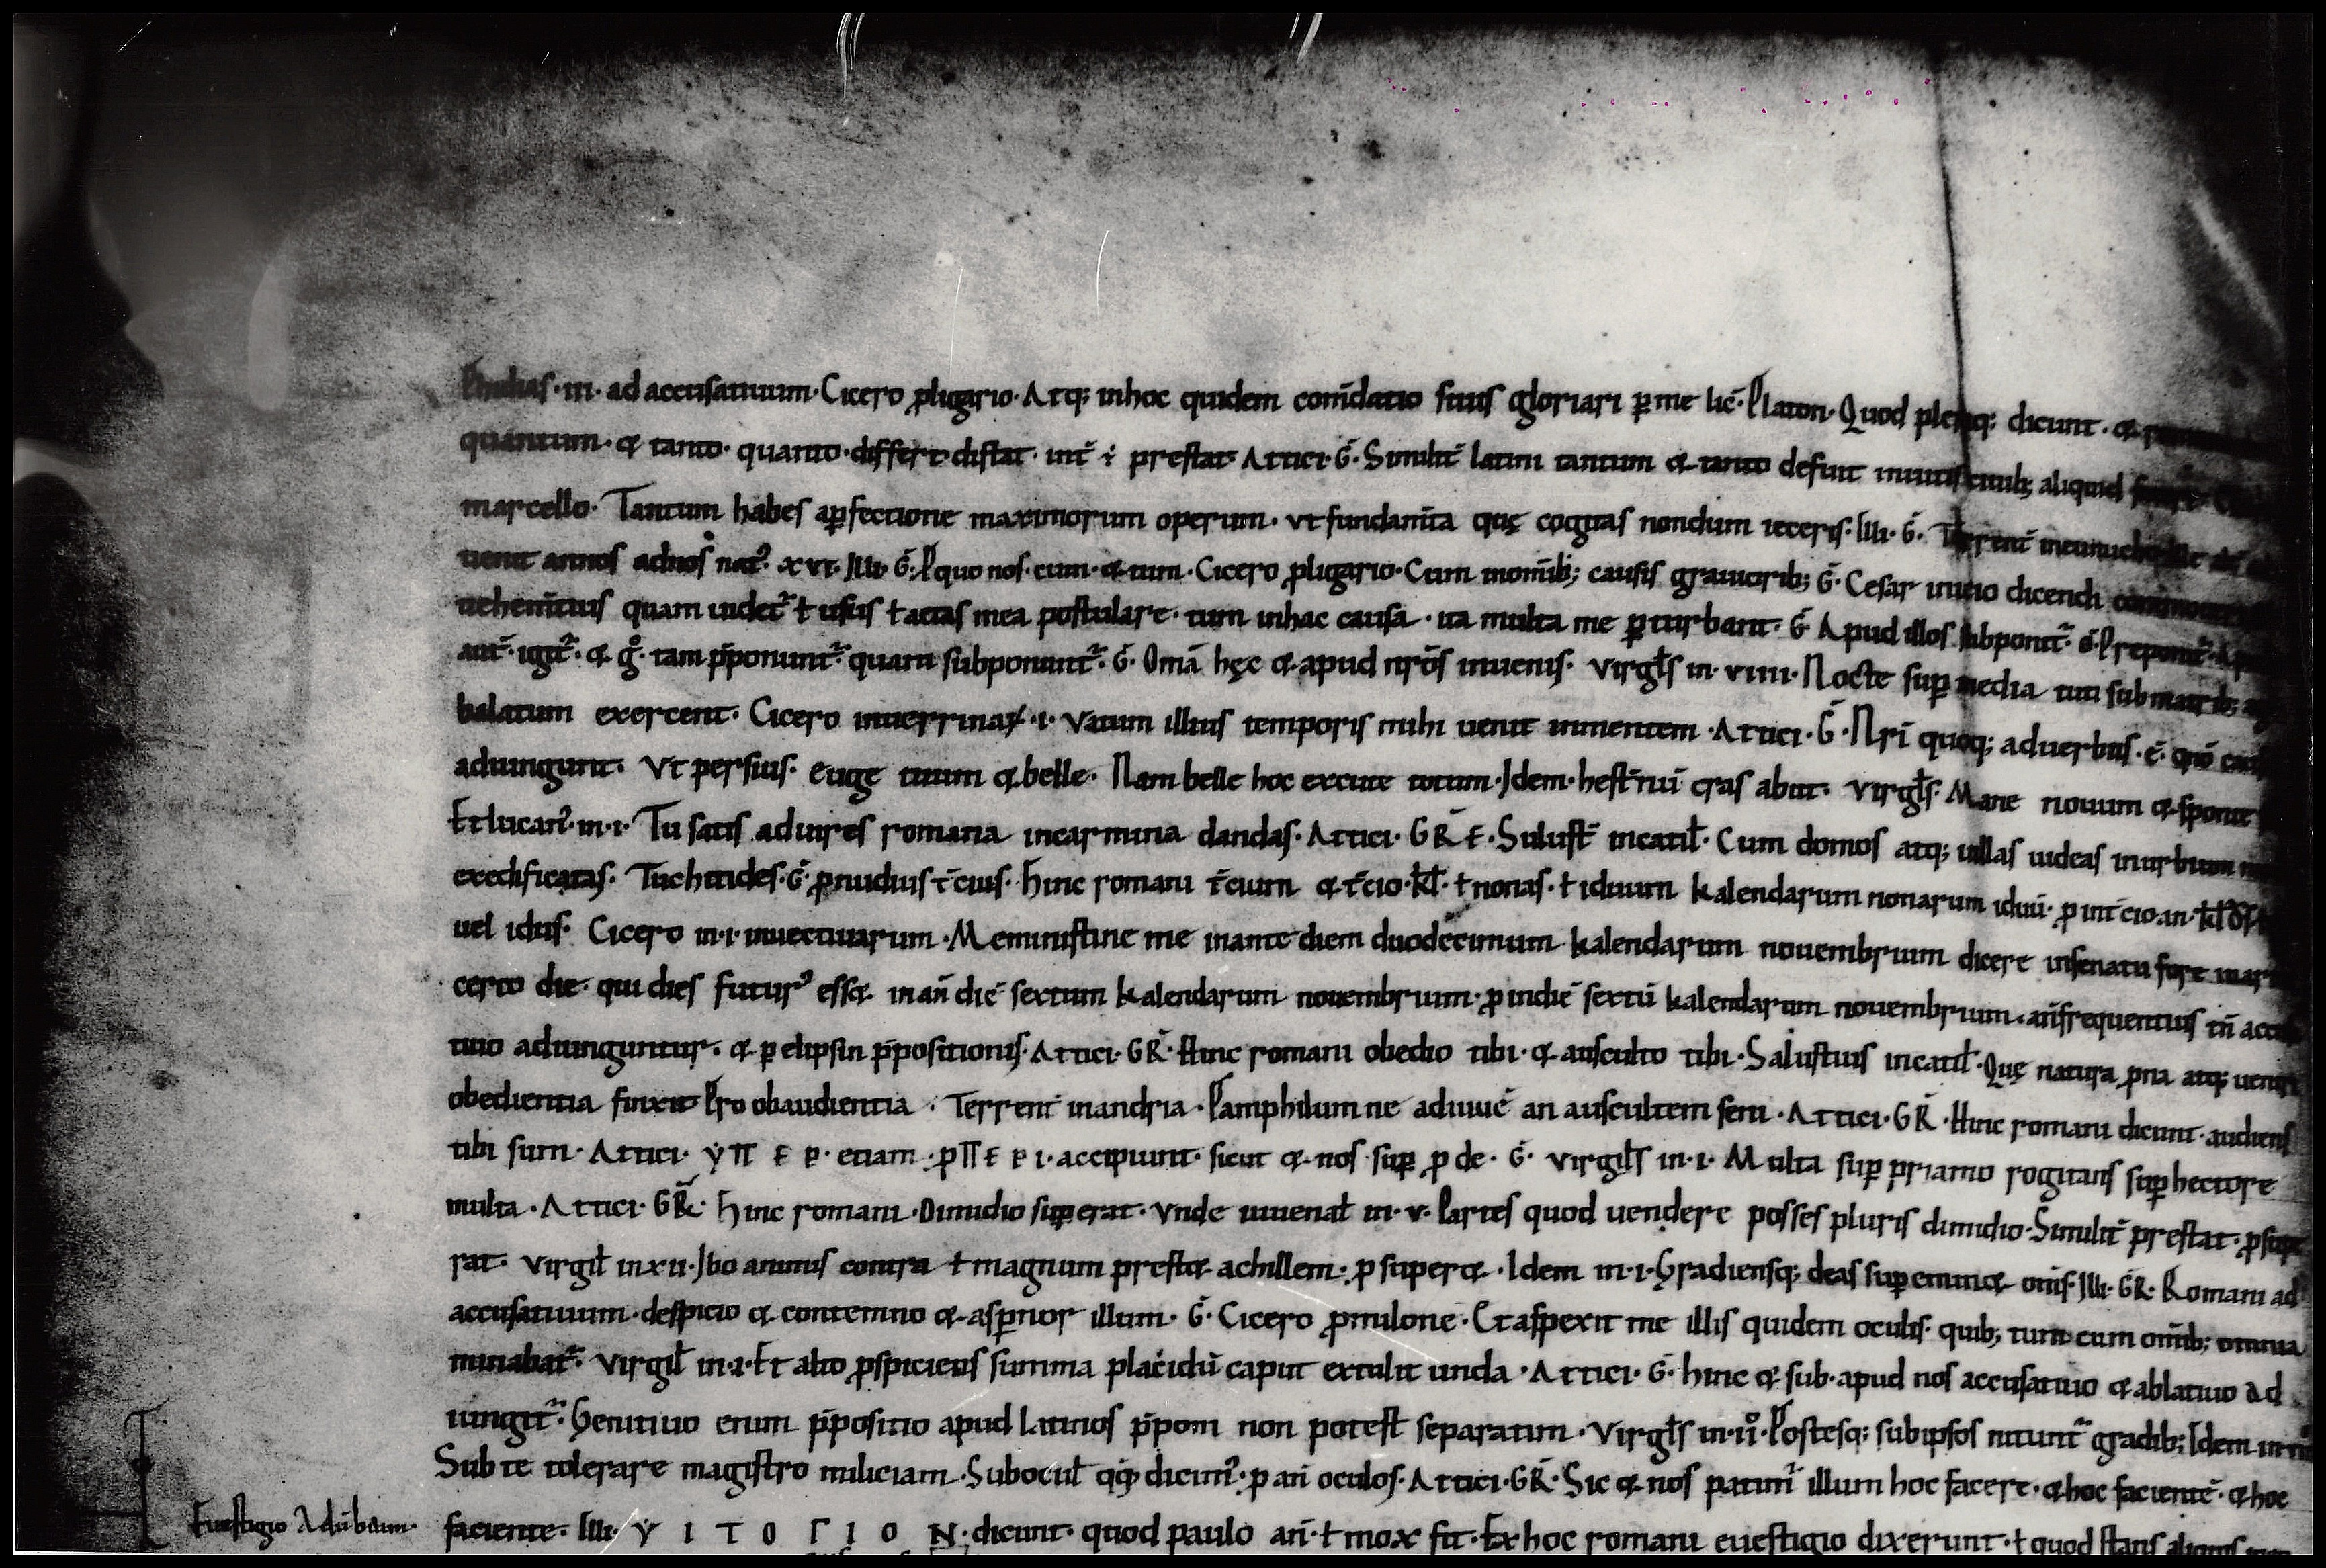 ·III· ad accusatiuum· Cicero ꝓ ligario· Atq; in hoc quidem com̄datio suus gloriari ꝑ me lic̄· Platon· Quod pleriq; dicunt· &
quantum· & tanto· quanto· differt distat· int̄ ÷ prestat Attici· Ḡ· Similit̄ latini tantum & tanto defuit inuitis ciuib; aliquid
marcello· Tantum habes a ꝑfectione maximorum operum· vt fundam̄ta quę cogitas nondum ieceris· Illi· Ḡ· Terrent̄ in eunucho
uenit annos ad nos nat᾿ xvi· Illi· Ḡ· ꝑ quo nos· cum· & tum· Cicero ꝓ ligario· Cum in om̄ib; causis grauiorib; Ḡ· Cesar initio dicendi
uehem̄tius quam uidet᷑ ł usus ł aetas mea postulare· tum in hac causa· ita multa me ꝑturbant· Ḡ Apud illos subponit᷑· Ḡ· Preponit᷑·
aut̄· igit᷑· & g̊· tam p̄ponunt᷑ quam subponunt᷑· Ḡ· Om̄a hęc & apud nr̄os inuenis· Virgłs in· VIIII· Nocte suꝑ media tuti sub matrib;
balatum exercent· Cicero in uerrinaꝝ ·I· Vatum illius temporis mihi uenit in mentem· Attici· Ḡ· Nr̄i quoq; aduerbiis· ē· qn̄o
adiungunt· Vt persius· Euge tuum & belle· Nam belle hoc excute totum· Idem· hest̄nū cras abiit· Virgłs· Mane nouum & sponte
Et lucan᾿· in· I· Tu satis ad uires romana in carmina dandas· Attici· GR̄E· Salust̄ in catił· Cum domos atq; uillas uideas in urbium
exedificatas· Tuchitides· Ḡ· ꝓ nudius t̄cius· hinc romani t̄cium & t̄cio· kł· ł nonas· ł iduum kalendarum nonarum iduū· ꝓ in t̄cio an· kł
uel idus· Cicero in· I· inuectiuarum· Meministine me in ante diem duodecimum kalendarum nouembrium dicere in senatu fore
certo die· qui dies futur᾿ ess& in an̄ diē sextum kalendarum nouembrium· ꝓ in diē sextū kalendarum nouembrium· an̄ frequentius tn̄
tiuo adiunguntur· & ꝑ elipsin p̄positionis· Attici· GR̄· Hinc romani obedio tibi· & ausculto tibi· Salustius in catił· Quę natura ꝓna atq; uentri
obedientia finxit Pro obaudientia· Terrent̄ in andria· Pamphilum ne adiuuē an auscultem seni· Attici· GR̄· Hinc romani dicunt· audiens
tibi sum· Attici· ΥΠΕΡ· etiam· ꝓ ΠΕΡΙ· accipiunt· sicut & nos suꝑ ꝓ de· Ḡ· Virgiłs in· I· Multa suꝑ priamo rogitans suꝑ hectore
multa· Attici· GR̄· hinc romani· Dimidio suꝑerat· Vnde iuuenał in· V· Partes quod uendere posses pluris dimidio· Similit̄ prestat· ꝓ
rat· Virgił in XII· Ibo animis contra ł magnum prest& achillem· ꝓ super&· Idem in· I· Gradiensq; deas suꝑ eminet om̄s· Illi· GR̄· Romani ad
accusatiuum· despicio & contemno & asꝑnor illum· Ḡ· Cicero ꝓ milone· Et aspexit me illis quidem oculis· quib; tum cum om̄ib; omnia
minabat᷑· Virgił in· I· Et alto ꝓspiciens summa placidū caput extulit unda· Attici· Ḡ· hinc & sub· apud nos accusatiuo & ablatiuo ad
iungit᷑· Genitiuo enim p̄positio apud latinos p̄poni non potest separatim· Virgłs in· II· Postesq; sub ipsos nitunt᷑ gradib; Idem in·
Sub te tolerare magistro miliciam· Sub ocuł qq̨ dicim᾿· ꝓ an̄ oculos· Attici· GR̄· Sic & nos patim᾿ illum hoc facere· & hoc facientē· & hoc
Euestigio Aduebium·
faciente· Illi· ΥΙΤΟΓΙΟΝ· dicunt· quod paulo an̄· ł mox fit· Ex hoc romani euestigio dixerunt· ł quod stans